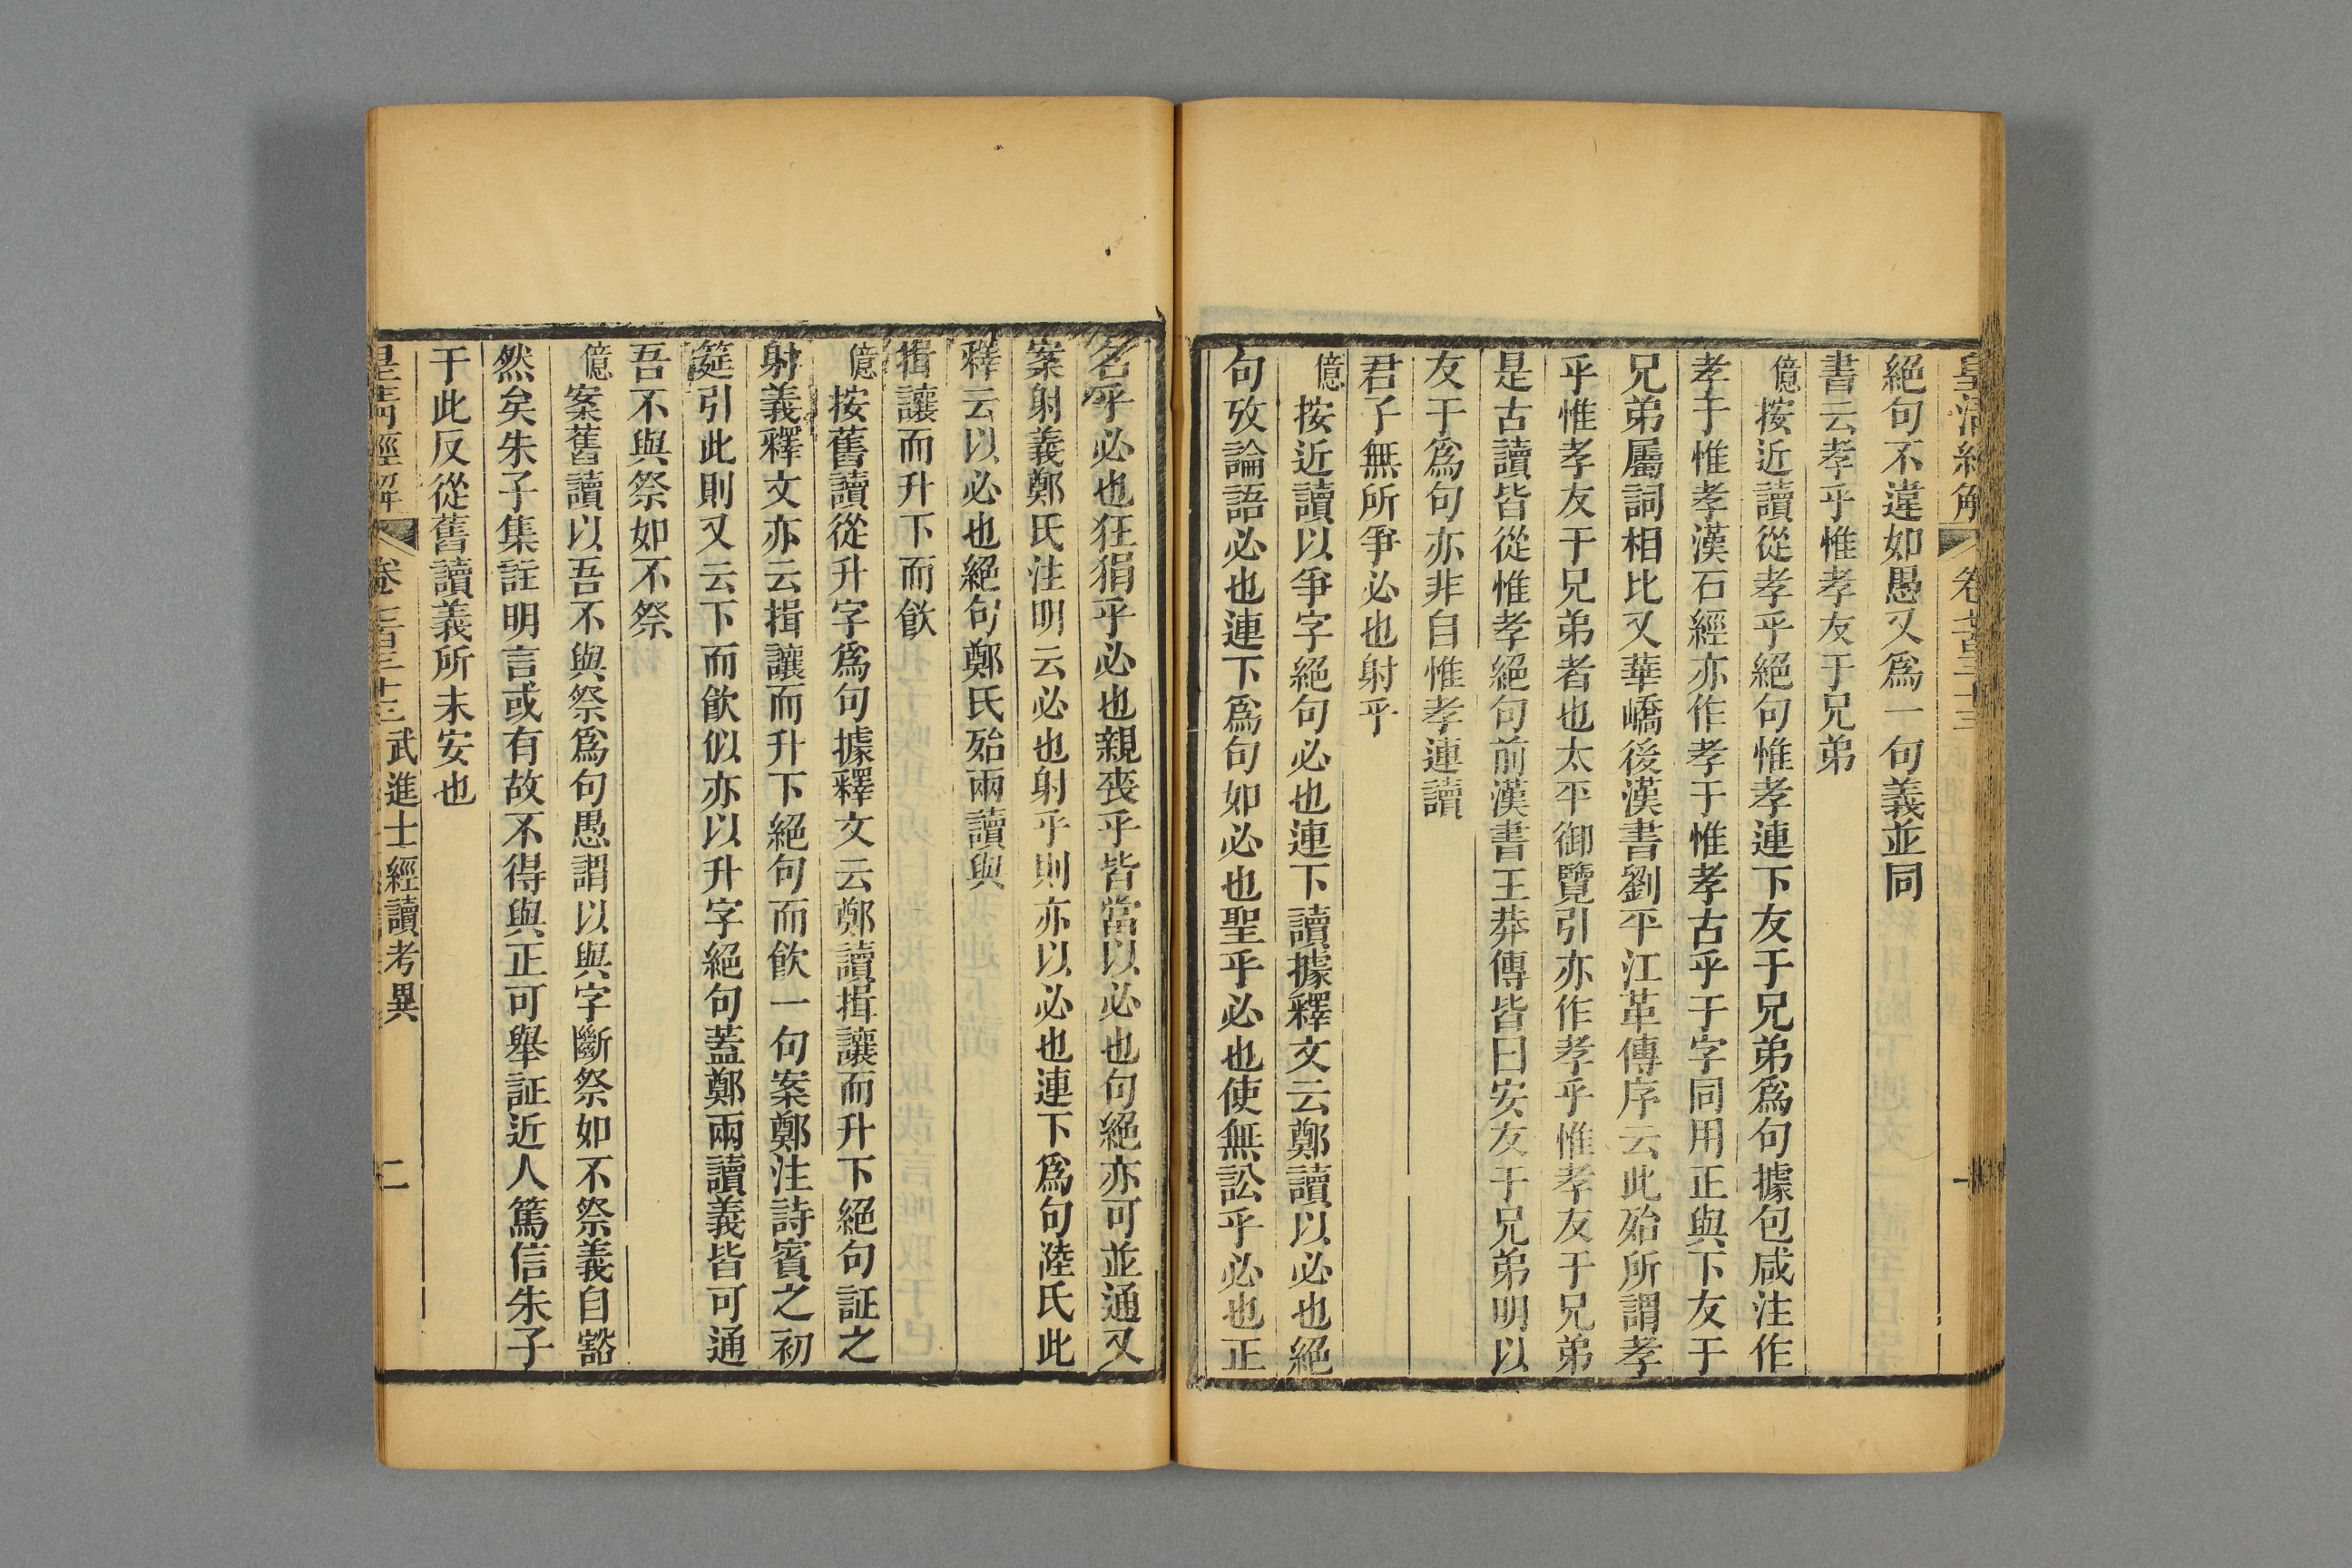 皇清經解 卷 一
絕句不違如愚又爲一句義並同
書云孝乎惟孝友于兄弟
億按近讀從孝乎絕句惟孝連下友于兄弟爲句據包咸注作
孝于惟孝漢石經亦作孝于惟孝古乎于字同用正與下友于
兄弟屬詞相比又華嶠後漢書劉平江革傳序云此殆所謂孝
乎惟孝友于兄弟者也太平御覽引亦作孝乎惟孝友于兄弟
是古讀皆從惟孝絕句前漢書王莽傳皆曰安友于兄弟明以
友于爲句亦非自惟孝連讀
君子無所爭必也射乎
億按近讀以爭字絕句必也連下讀據釋文云鄭讀以必也絕
句攷論語必也連下爲句如必也聖乎必也使無訟乎必也正
名乎必也狂狷乎必也親喪乎皆當以必也句絕亦可並通又
案射義鄭氏注明云必也射乎則亦以必也連下爲句陸氏此
釋云以必也絕句鄭氏殆兩讀與
揖讓而升下而飮
億按舊讀從升字爲句據釋文云鄭讀揖讓而升下絕句証之
射義釋文亦云揖讓而升下絕句而飮一句案鄭注詩賓之初
筵引此則又云下而飮似亦以升字絕句蓋鄭兩讀義皆可通
吾不與祭如不祭
億案舊讀以吾不與祭爲句愚謂以與字斷祭如不祭義自豁
然矣朱子集註明言或有故不得與正可舉証近人篤信朱子
于此反從舊讀義所未安也
皇清經解 卷 武進士經讀考異 二